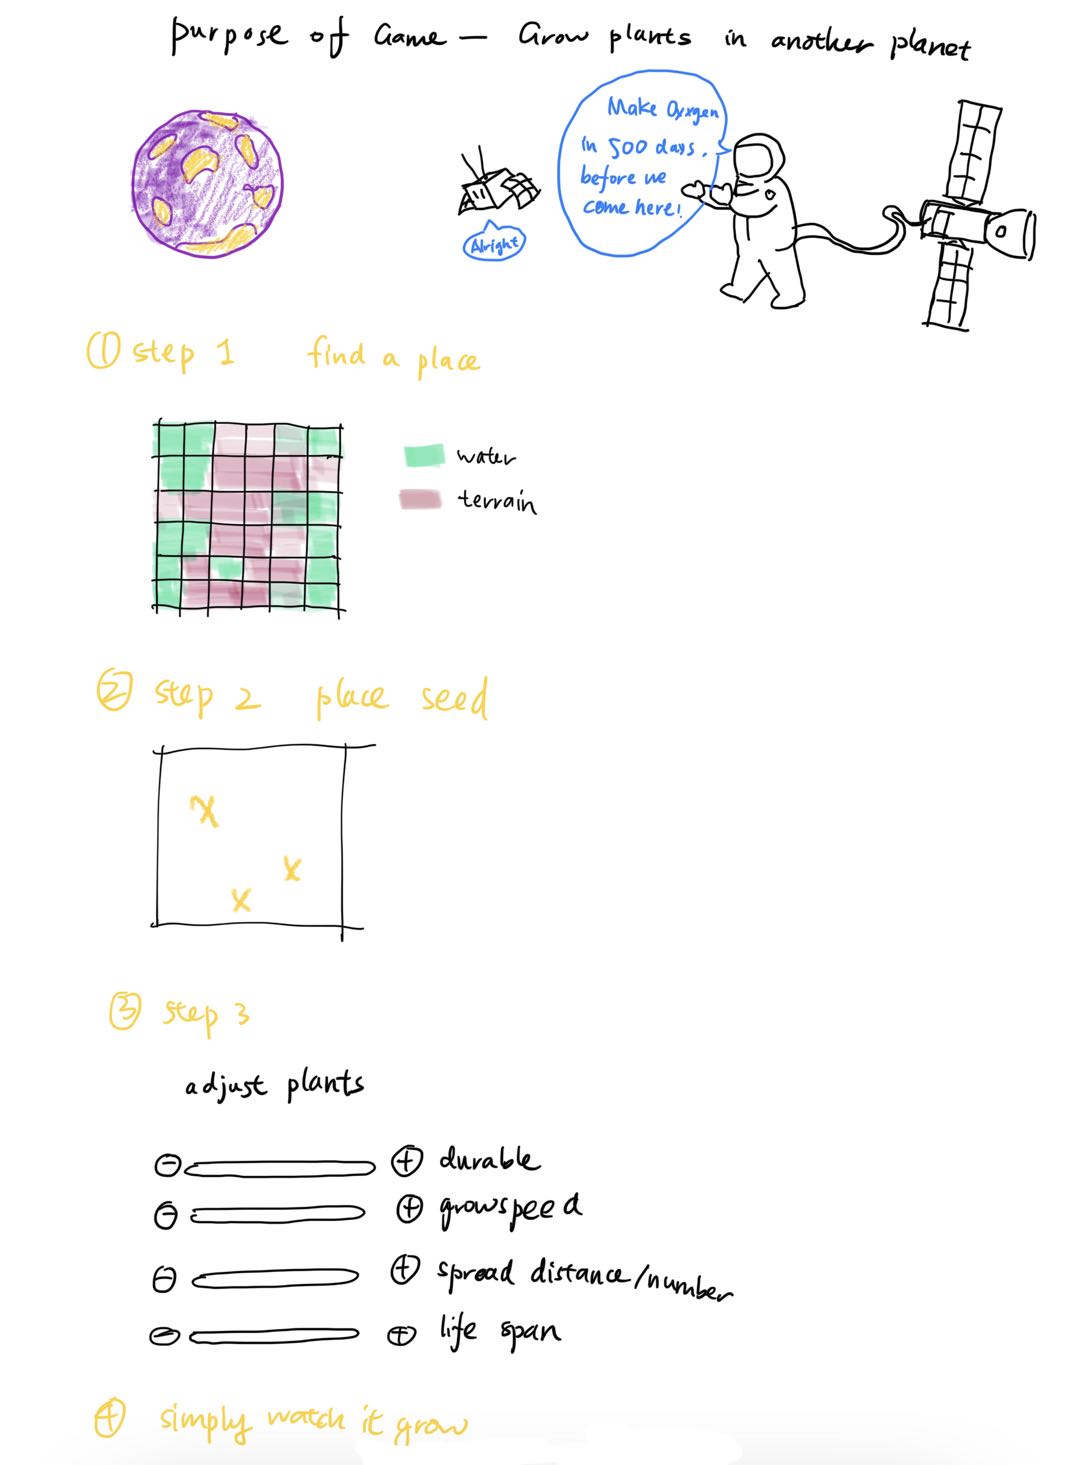 Purpose of Game — Grow plants in another planet
Make Oxygen
in 500 days,
before we
come here!
Alright
① step 1 find a place
water
terrain
② step 2 place seed
x
x
x
③ step 3
adjust plants
- + durable
- + growspeed
- + spread distance/number
- + life span
④ simply watch it grow